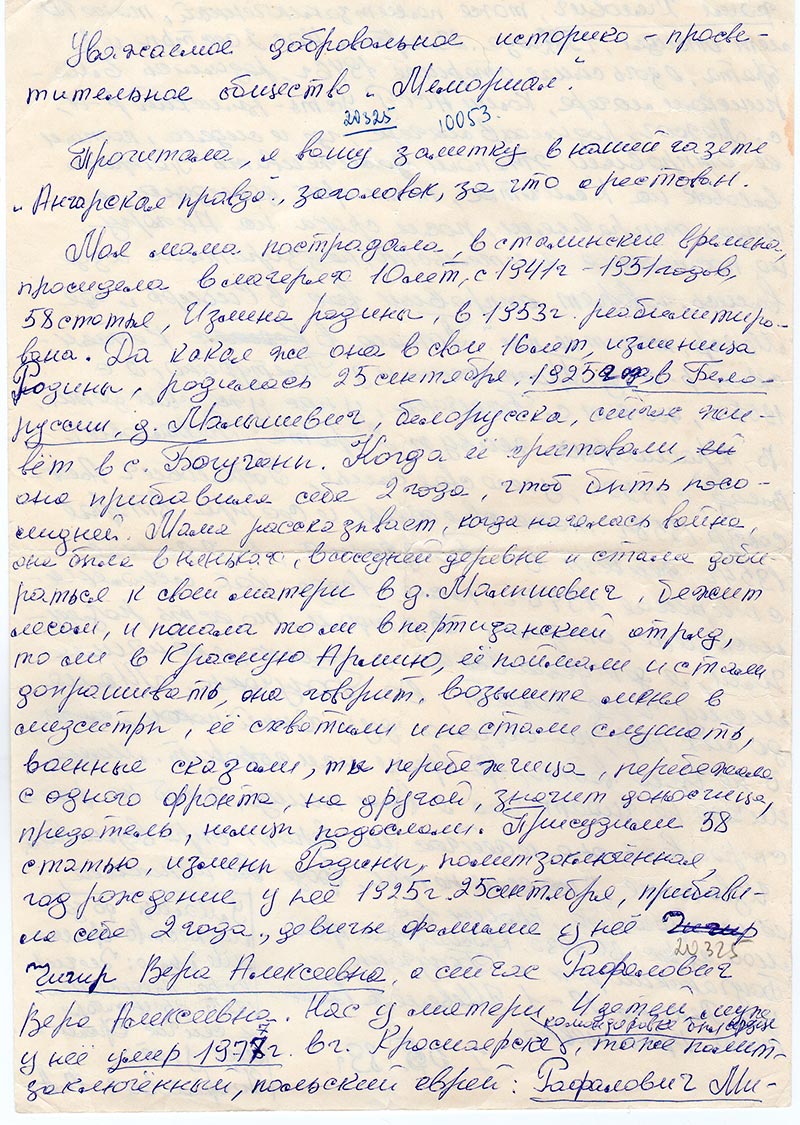 Уважаемое добровольное историко-просве-
тительное общество „Мемориал".
20325 10053.
Прочитала, я вашу заметку в нашей газете
„Ангарская правда", заголовок, за что арестован.
Моя мама пострадала, в сталинские времена,
просидела в лагерях 10 лет, с 1941г - 1951 годов,
58 статья, Измена родины, в 1953г. реабилитиро-
вана. Да какая же она в свои 16 лет, изменница
Родины, родилась 25 сентября, 1925 года, в Бело-
руссии, д. Малышевич, белорусска, сейчас жи-
вёт в с. Богучаны. Когда её арестовали, ей
она прибавила себе 2 года, чтоб быть посо-
лидней. Мама рассказывает, когда началась война,
она была в няньках, в соседней деревне и стала доби-
раться к своей матери в д. Малышевич, бежит
лесом, и попала то ли в партизанский отряд,
то ли в Красную Армию, её поймали и стали
допрашивать, она говорит, возьмите меня в
медсестры, её схватили и не стали слушать,
военные сказали, ты перебежчица, перебежала
с одного фронта, на другой, значит доносчица,
предатель, немцы подослали. Присудили 58
статью, измены Родины, политзаключённая,
год рождение у неё 1925г. 25 сентября, прибави-
ла себе 2 года, девичье фамилие у неё Чигир
20325
Чигир Вера Алексеевна, а сейчас Рафалович
Вера Алексеевна. Нас у матери 4 детей, муж
у неё умер 1977г. в г. Красноярске, тоже полит-
заключённый, польский еврей: Рафалович Ми-